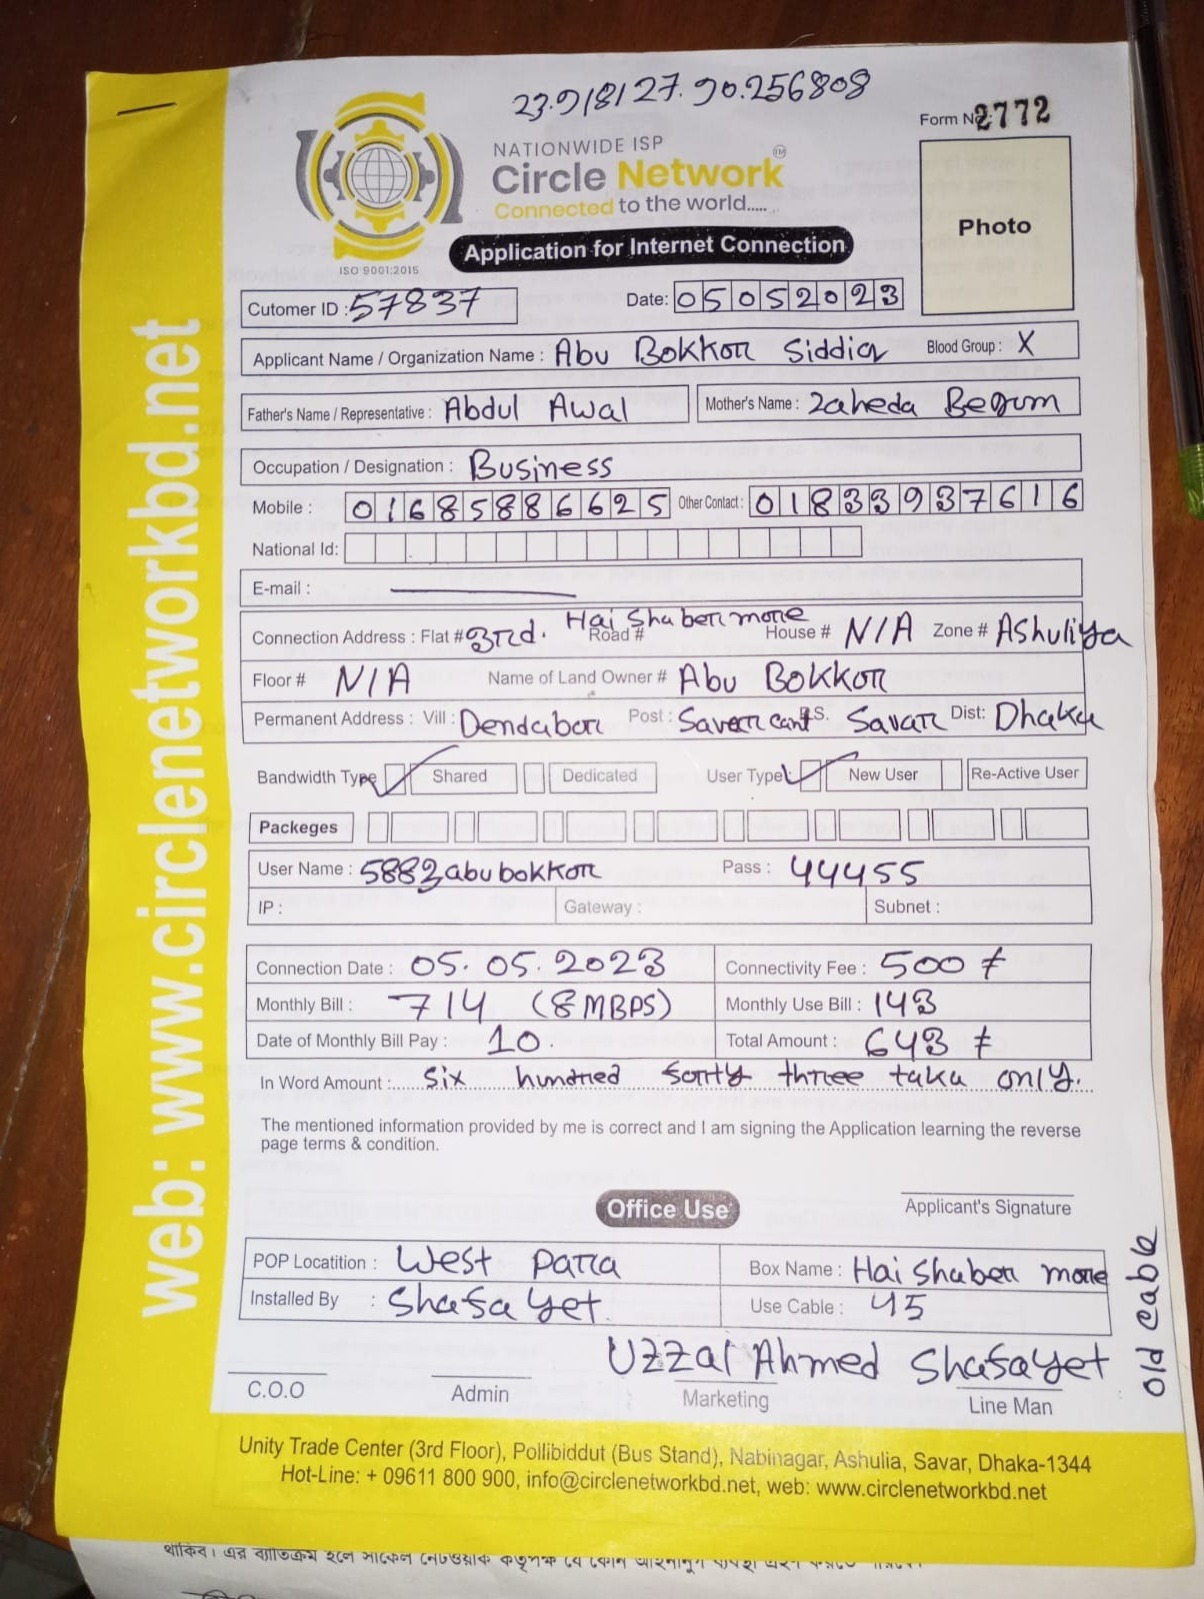 23.918127.90.256808
Form No. 2772
NATIONWIDE ISP
Circle Network TM
Connected to the world.....
ISO 9001:2015
Application for Internet Connection
Photo
Cutomer ID : 57837 Date: 05052023
Applicant Name / Organization Name : Abu Bokkor Siddiq Blood Group : X
Father's Name / Representative : Abdul Awal Mother's Name : Zaheda Begum
Occupation / Designation : Business
Mobile : 01685886625 Other Contact : 01833937616
National Id:
E-mail :
Connection Address : Flat # 3rd. Road # Hai Shaber more House # N/A Zone # Ashuliya
Floor # N/A Name of Land Owner # Abu Bokkor
Permanent Address : Vill : Dendabor Post : Saver cant P.S. Savar Dist: Dhaka
Bandwidth Type Shared Dedicated User Type New User Re-Active User
Packeges
User Name : 5883abubokkor Pass : 44455
IP : Gateway : Subnet :
Connection Date : 05.05.2023 Connectivity Fee : 500 ৳
Monthly Bill : 714 (8MBPS) Monthly Use Bill : 143
Date of Monthly Bill Pay : 10. Total Amount : 643 ৳
In Word Amount :..... six hundred forty three taka only.
The mentioned information provided by me is correct and I am signing the Application learning the reverse
page terms & condition.
Office Use
Applicant's Signature
POP Locatition : West Parra Box Name : Hai Shaber more
Installed By : Shafayet Use Cable : 45
old cable
Uzzal Ahmed Shafayet
C.O.O Admin Marketing Line Man
Unity Trade Center (3rd Floor), Pollibiddut (Bus Stand), Nabinagar, Ashulia, Savar, Dhaka-1344
Hot-Line: + 09611 800 900, info@circlenetworkbd.net, web: www.circlenetworkbd.net
web: www.circlenetworkbd.net
থাকিব। এর ব্যতিক্রম হলে সার্কেল নেটওয়ার্ক কতৃপক্ষ যে কোন